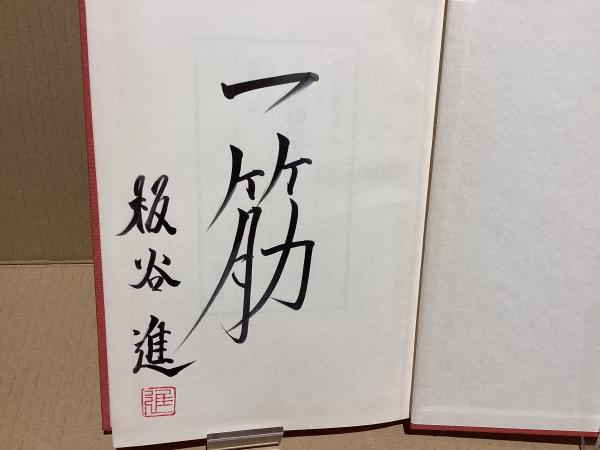 一筋
板谷進
進